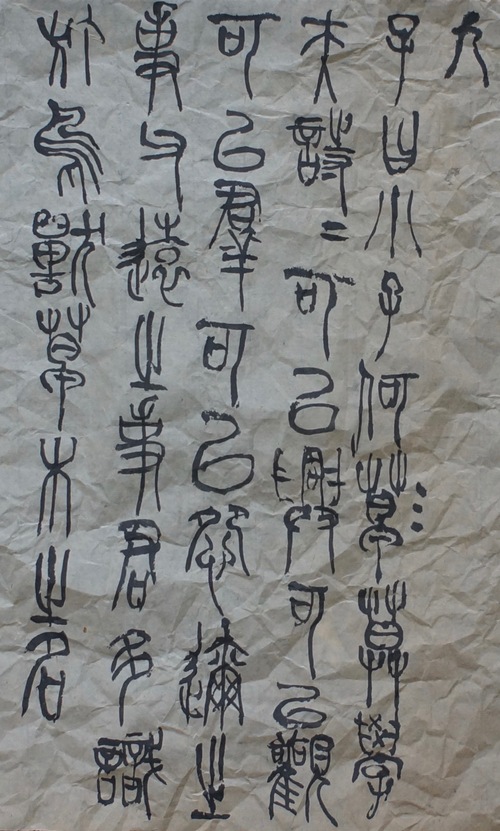 九
子曰小子何莫莫學
夫詩〻可以興可以觀
可以羣可以怨邇之
事父遠之事君多識
於鳥獸草木之名